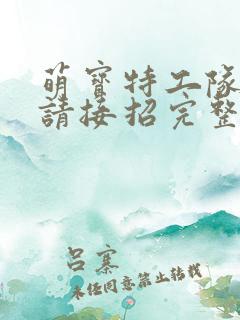 萌寶特工隊
請接招完整
呂寨
未经同意禁止转载